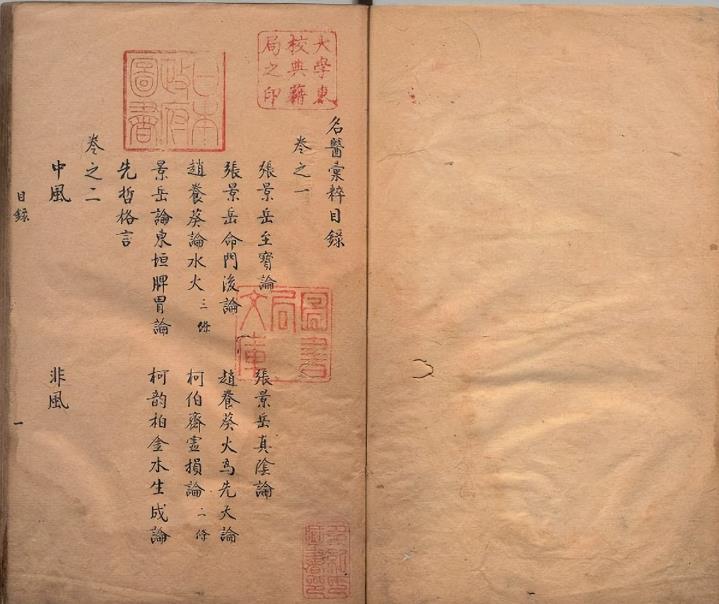 大學東
校典籍
局之印
日本
政府
圖書
名醫彙粹目錄
卷之一
張景岳至寶論　張景岳真陰論
張景岳命門後論　趙養葵火為先天論
趙養葵論水火 三條　柯伯齋虛損論 二條
景岳論東垣脾胃論　柯韵柏金水生成論
先哲格言
卷之二
中風　非風
目錄　一
圖書
局
文庫